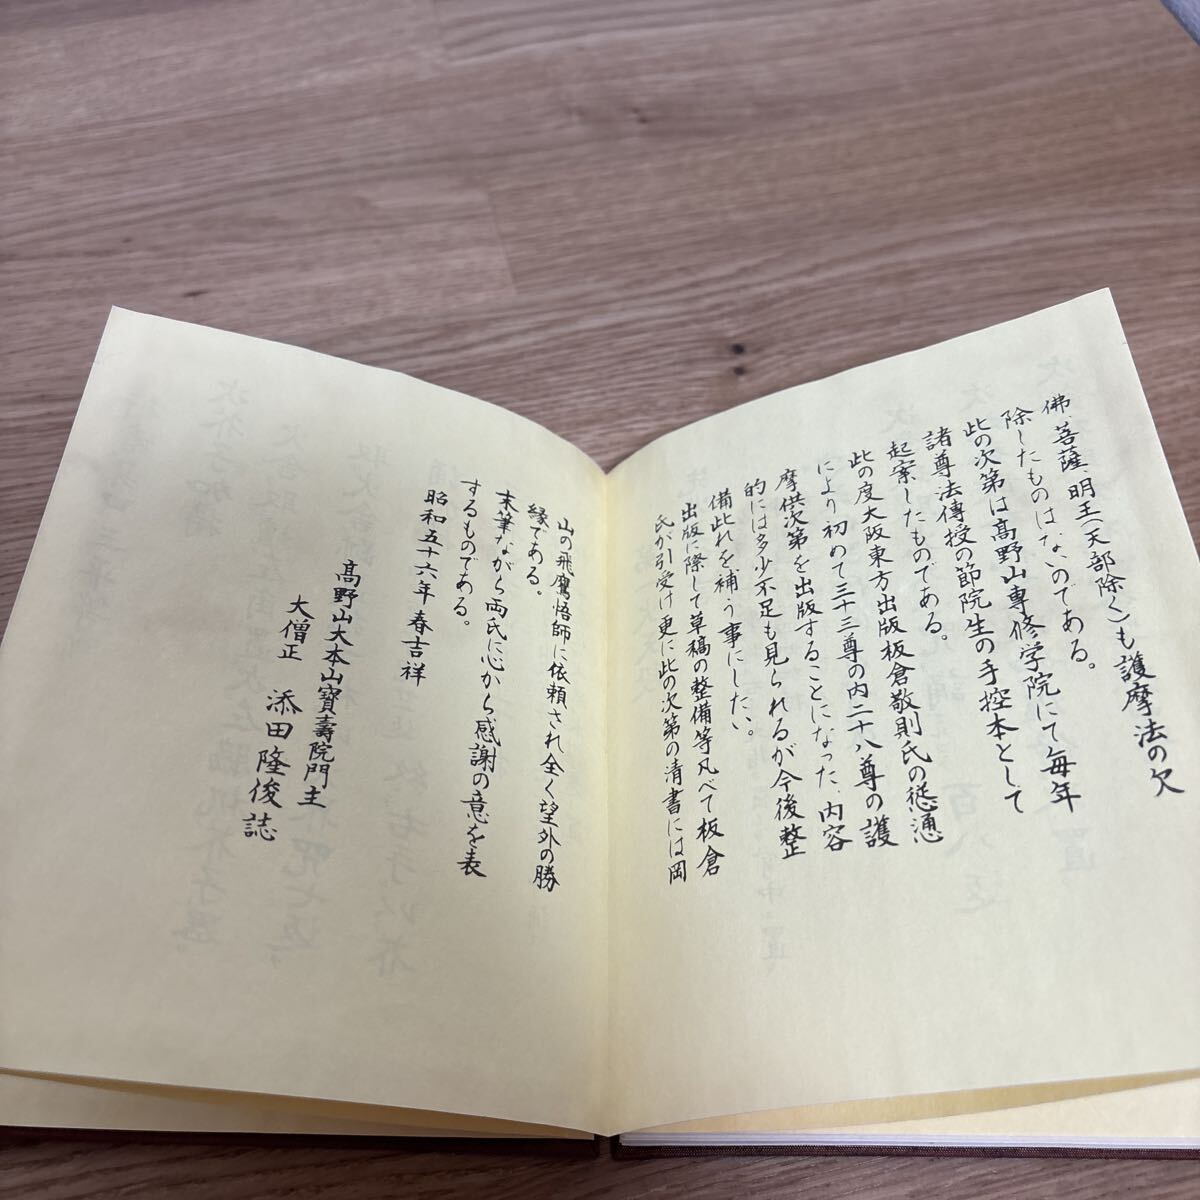 佛、菩薩、明王(天部除く)も護摩法の欠
除したものはないのである。
此の次第は高野山専修学院にて毎年
諸尊法傳授の節院生の手控本として
起案したものである。
此の度大阪東方出版板倉敬則氏の慫慂
により初めて三十三尊の内二十八尊の護
摩供次第を出版することになった、内容
的には多少不足も見られるが今後整
備此れを補う事にしたい。
出版に際して草稿の整備等凡べて板倉
氏が引受け更に此の次第の清書には岡
山の飛鷹悟師に依頼され全く望外の勝
縁である。
末筆ながら両氏に心から感謝の意を表
するものである。
昭和五十六年 春吉祥
高野山大本山寶壽院門主
大僧正 添田隆俊誌